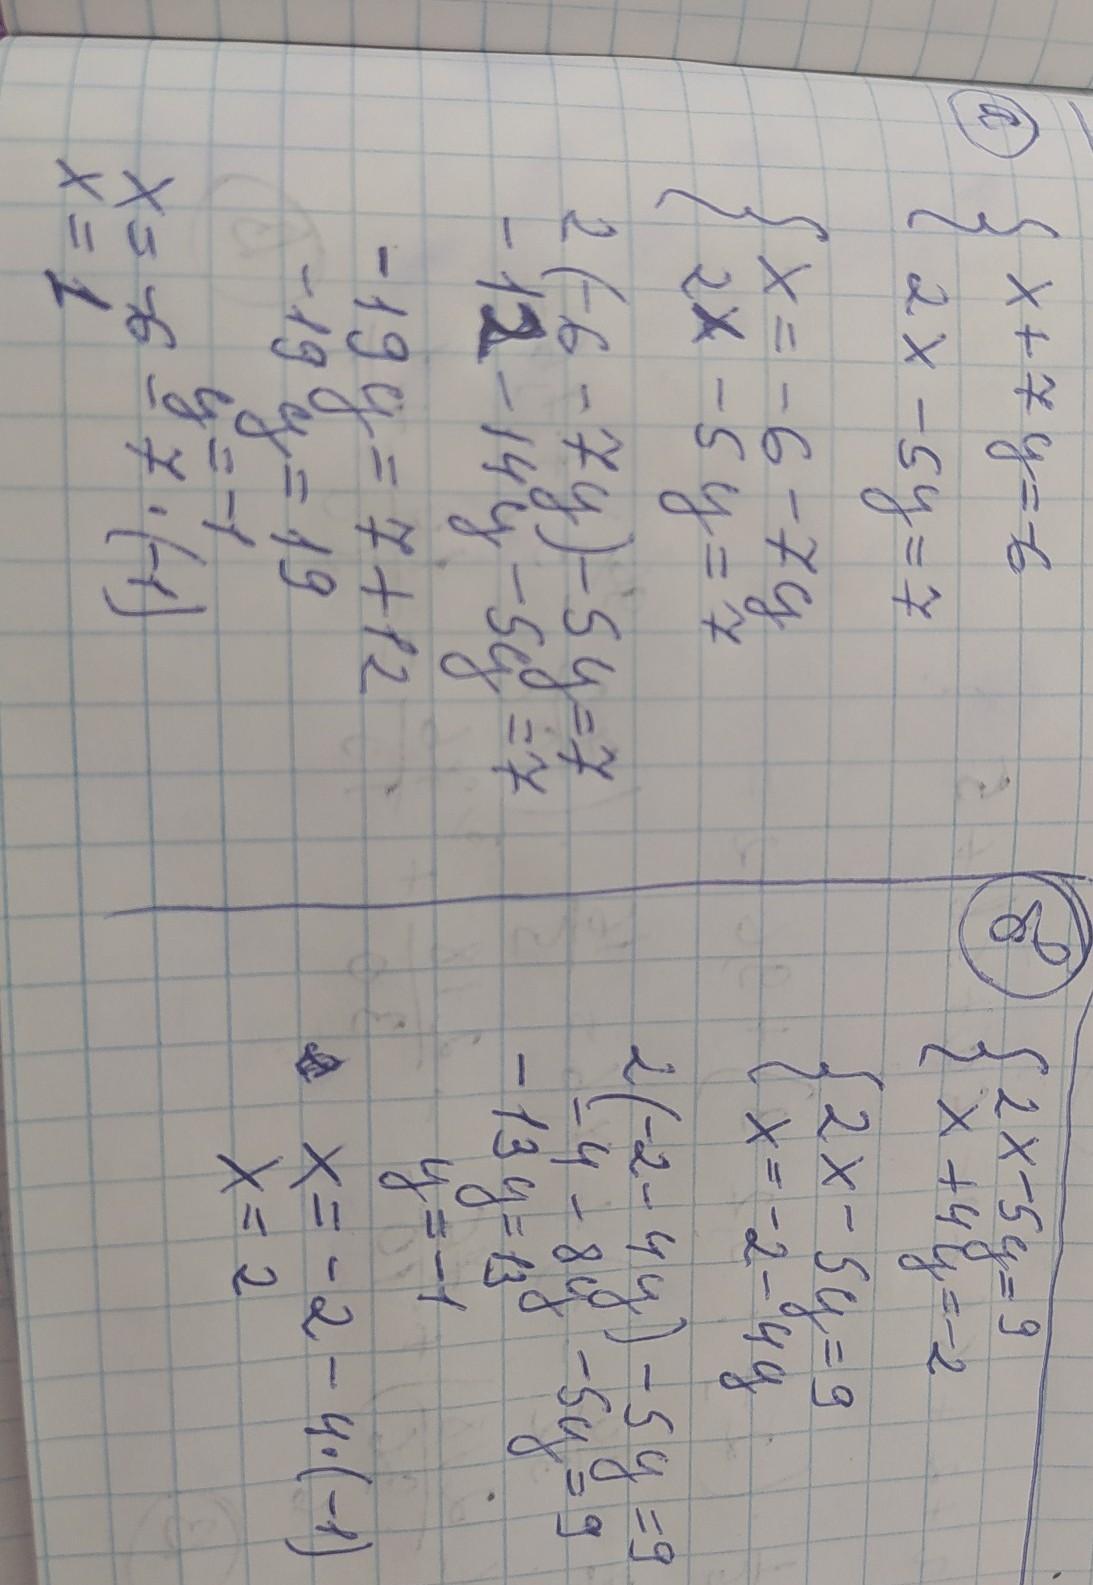 а
{ x + 7y = -6
{ 2x - 5y = 7
{ x = -6 - 7y
{ 2x - 5y = 7
2(-6 - 7y) - 5y = 7
-12 - 14y - 5y = 7
-19y = 7 + 12
-19y = 19
y = -1
x = -6 - 7 · (-1)
x = 1
б
{ 2x - 5y = 9
{ x + 4y = -2
{ 2x - 5y = 9
{ x = -2 - 4y
2(-2 - 4y) - 5y = 9
-4 - 8y - 5y = 9
-13y = 13
y = -1
x = -2 - 4 · (-1)
x = 2